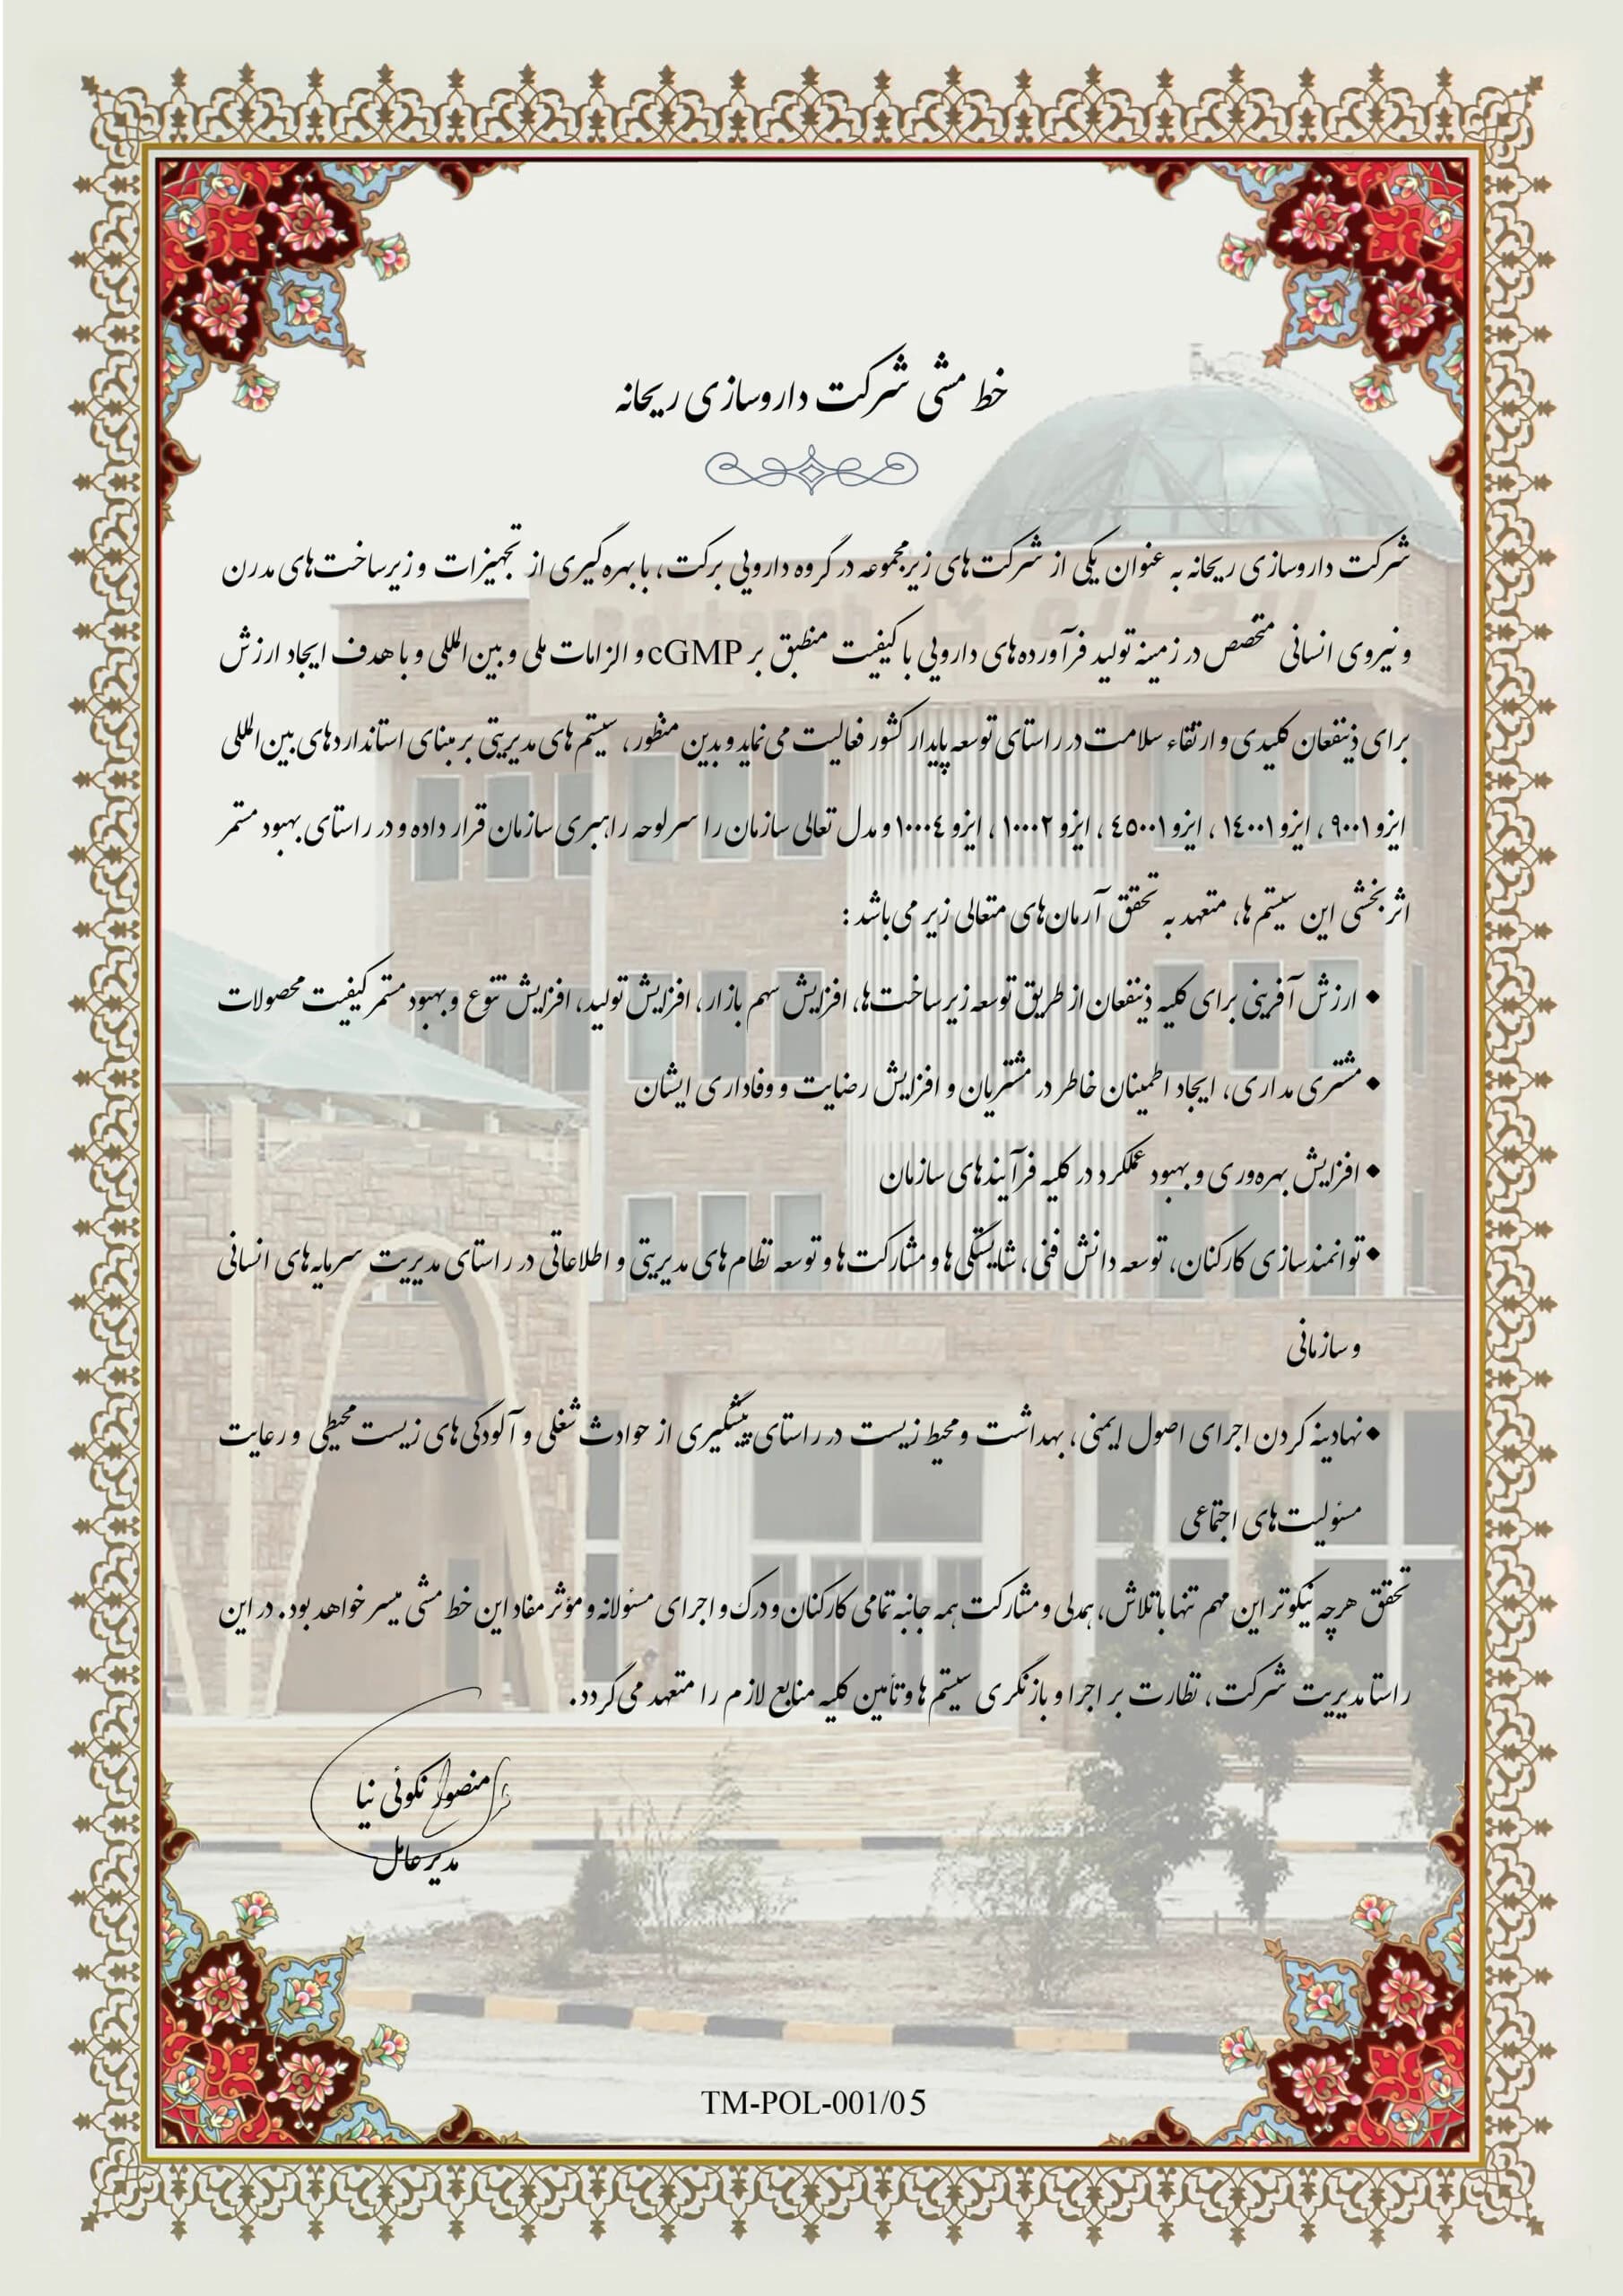 خط مشی شرکت داروسازی ریحانه
شرکت داروسازی ریحانه به عنوان یکی از شرکت‌های زیرمجموعه در گروه دارویی برکت، با بهره‌گیری از تجهیزات و زیرساخت‌های مدرن
و نیروی انسانی متخصص در زمینه تولید فرآورده‌های دارویی با کیفیت منطبق بر cGMP و الزامات ملی و بین‌المللی و با هدف ایجاد ارزش
برای ذینفعان کلیدی و ارتقاء سلامت در راستای توسعه پایدار کشور فعالیت می‌نماید و بدین منظور، سیستم‌های مدیریتی بر مبنای استانداردهای بین‌المللی
ایزو ۹۰۰۱ ، ایزو ۱٤۰۰۱ ، ایزو ٤٥۰۰۱ ، ایزو ۱۰۰۰۲ ، ایزو ۱۰۰۰٤ و مدل تعالی سازمان را سرلوحه راهبری سازمان قرار داده و در راستای بهبود مستمر
اثربخشی این سیستم‌ها، متعهد به تحقق آرمان‌های متعالی زیر می‌باشد :
• ارزش آفرینی برای کلیه ذینفعان از طریق توسعه زیرساخت‌ها، افزایش سهم بازار، افزایش تولید، افزایش تنوع و بهبود مستمر کیفیت محصولات
• مشتری مداری، ایجاد اطمینان خاطر در مشتریان و افزایش رضایت و وفاداری ایشان
• افزایش بهره‌وری و بهبود عملکرد در کلیه فرآیندهای سازمان
• توانمندسازی کارکنان، توسعه دانش فنی، شایستگی‌ها و مشارکت‌ها و توسعه نظام‌های مدیریتی و اطلاعاتی در راستای مدیریت سرمایه‌های انسانی
و سازمانی
• نهادینه کردن اجرای اصول ایمنی، بهداشت و محیط زیست در راستای پیشگیری از حوادث شغلی و آلودگی‌های زیست محیطی و رعایت
مسئولیت‌های اجتماعی
تحقق هرچه نیکوتر این مهم تنها با تلاش، همدلی و مشارکت همه جانبه تمامی کارکنان و درک و اجرای مسئولانه و مؤثر مفاد این خط مشی میسر خواهد بود. در این
راستا مدیریت شرکت، نظارت بر اجرا و بازنگری سیستم‌ها و تأمین کلیه منابع لازم را متعهد می‌گردد.
منصور نکوئی نیا
مدیر عامل
TM-POL-001/05